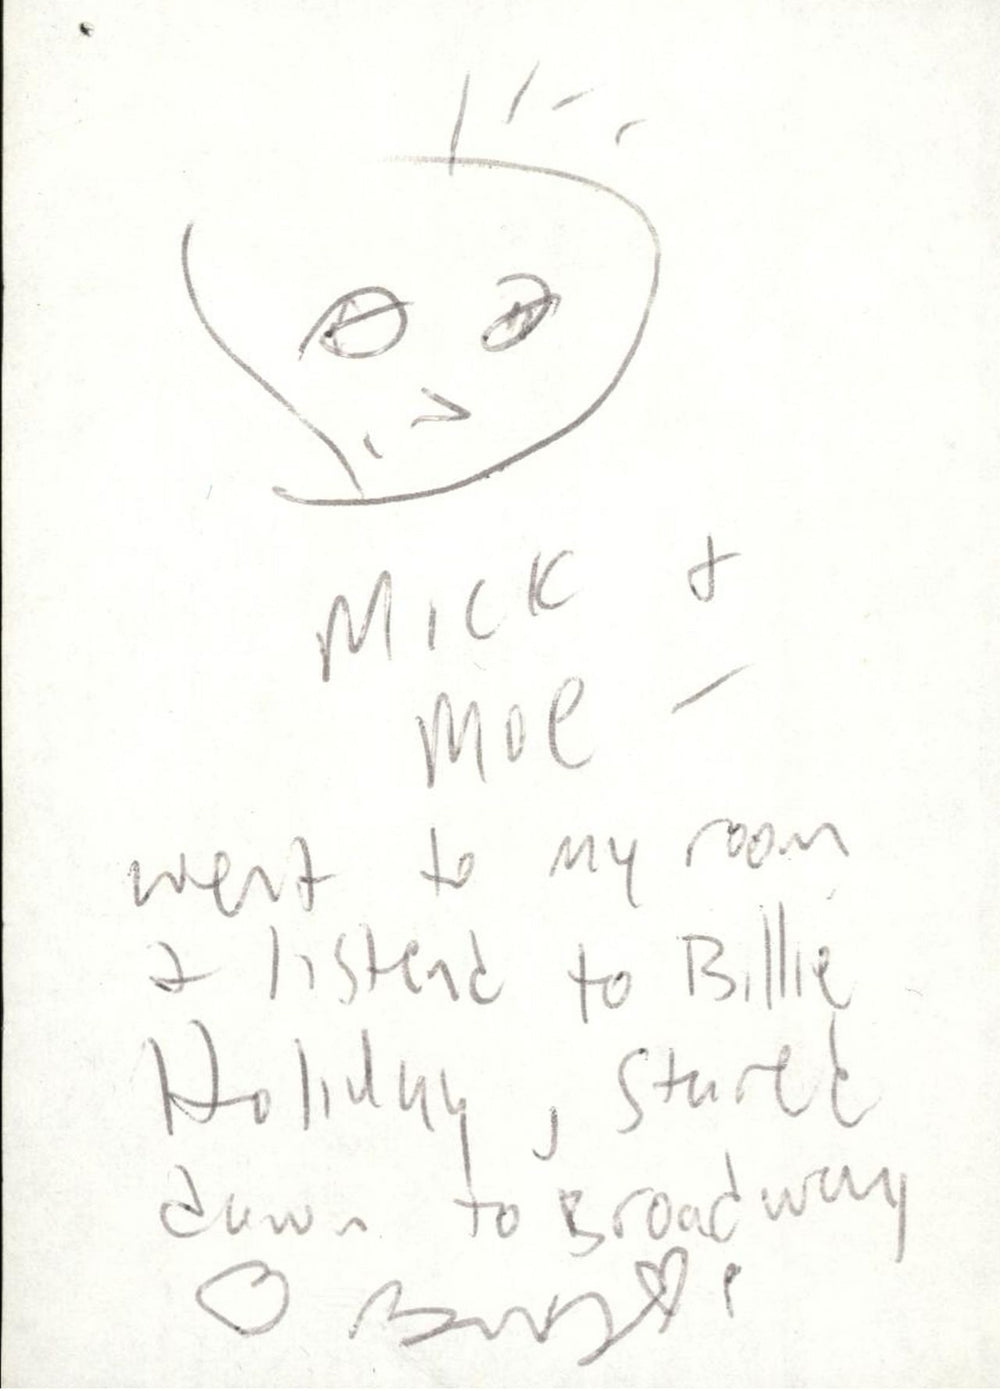 Mick +
Moe —
went to my room
+ listend to Billie
Holiday, stared
down to Broadway